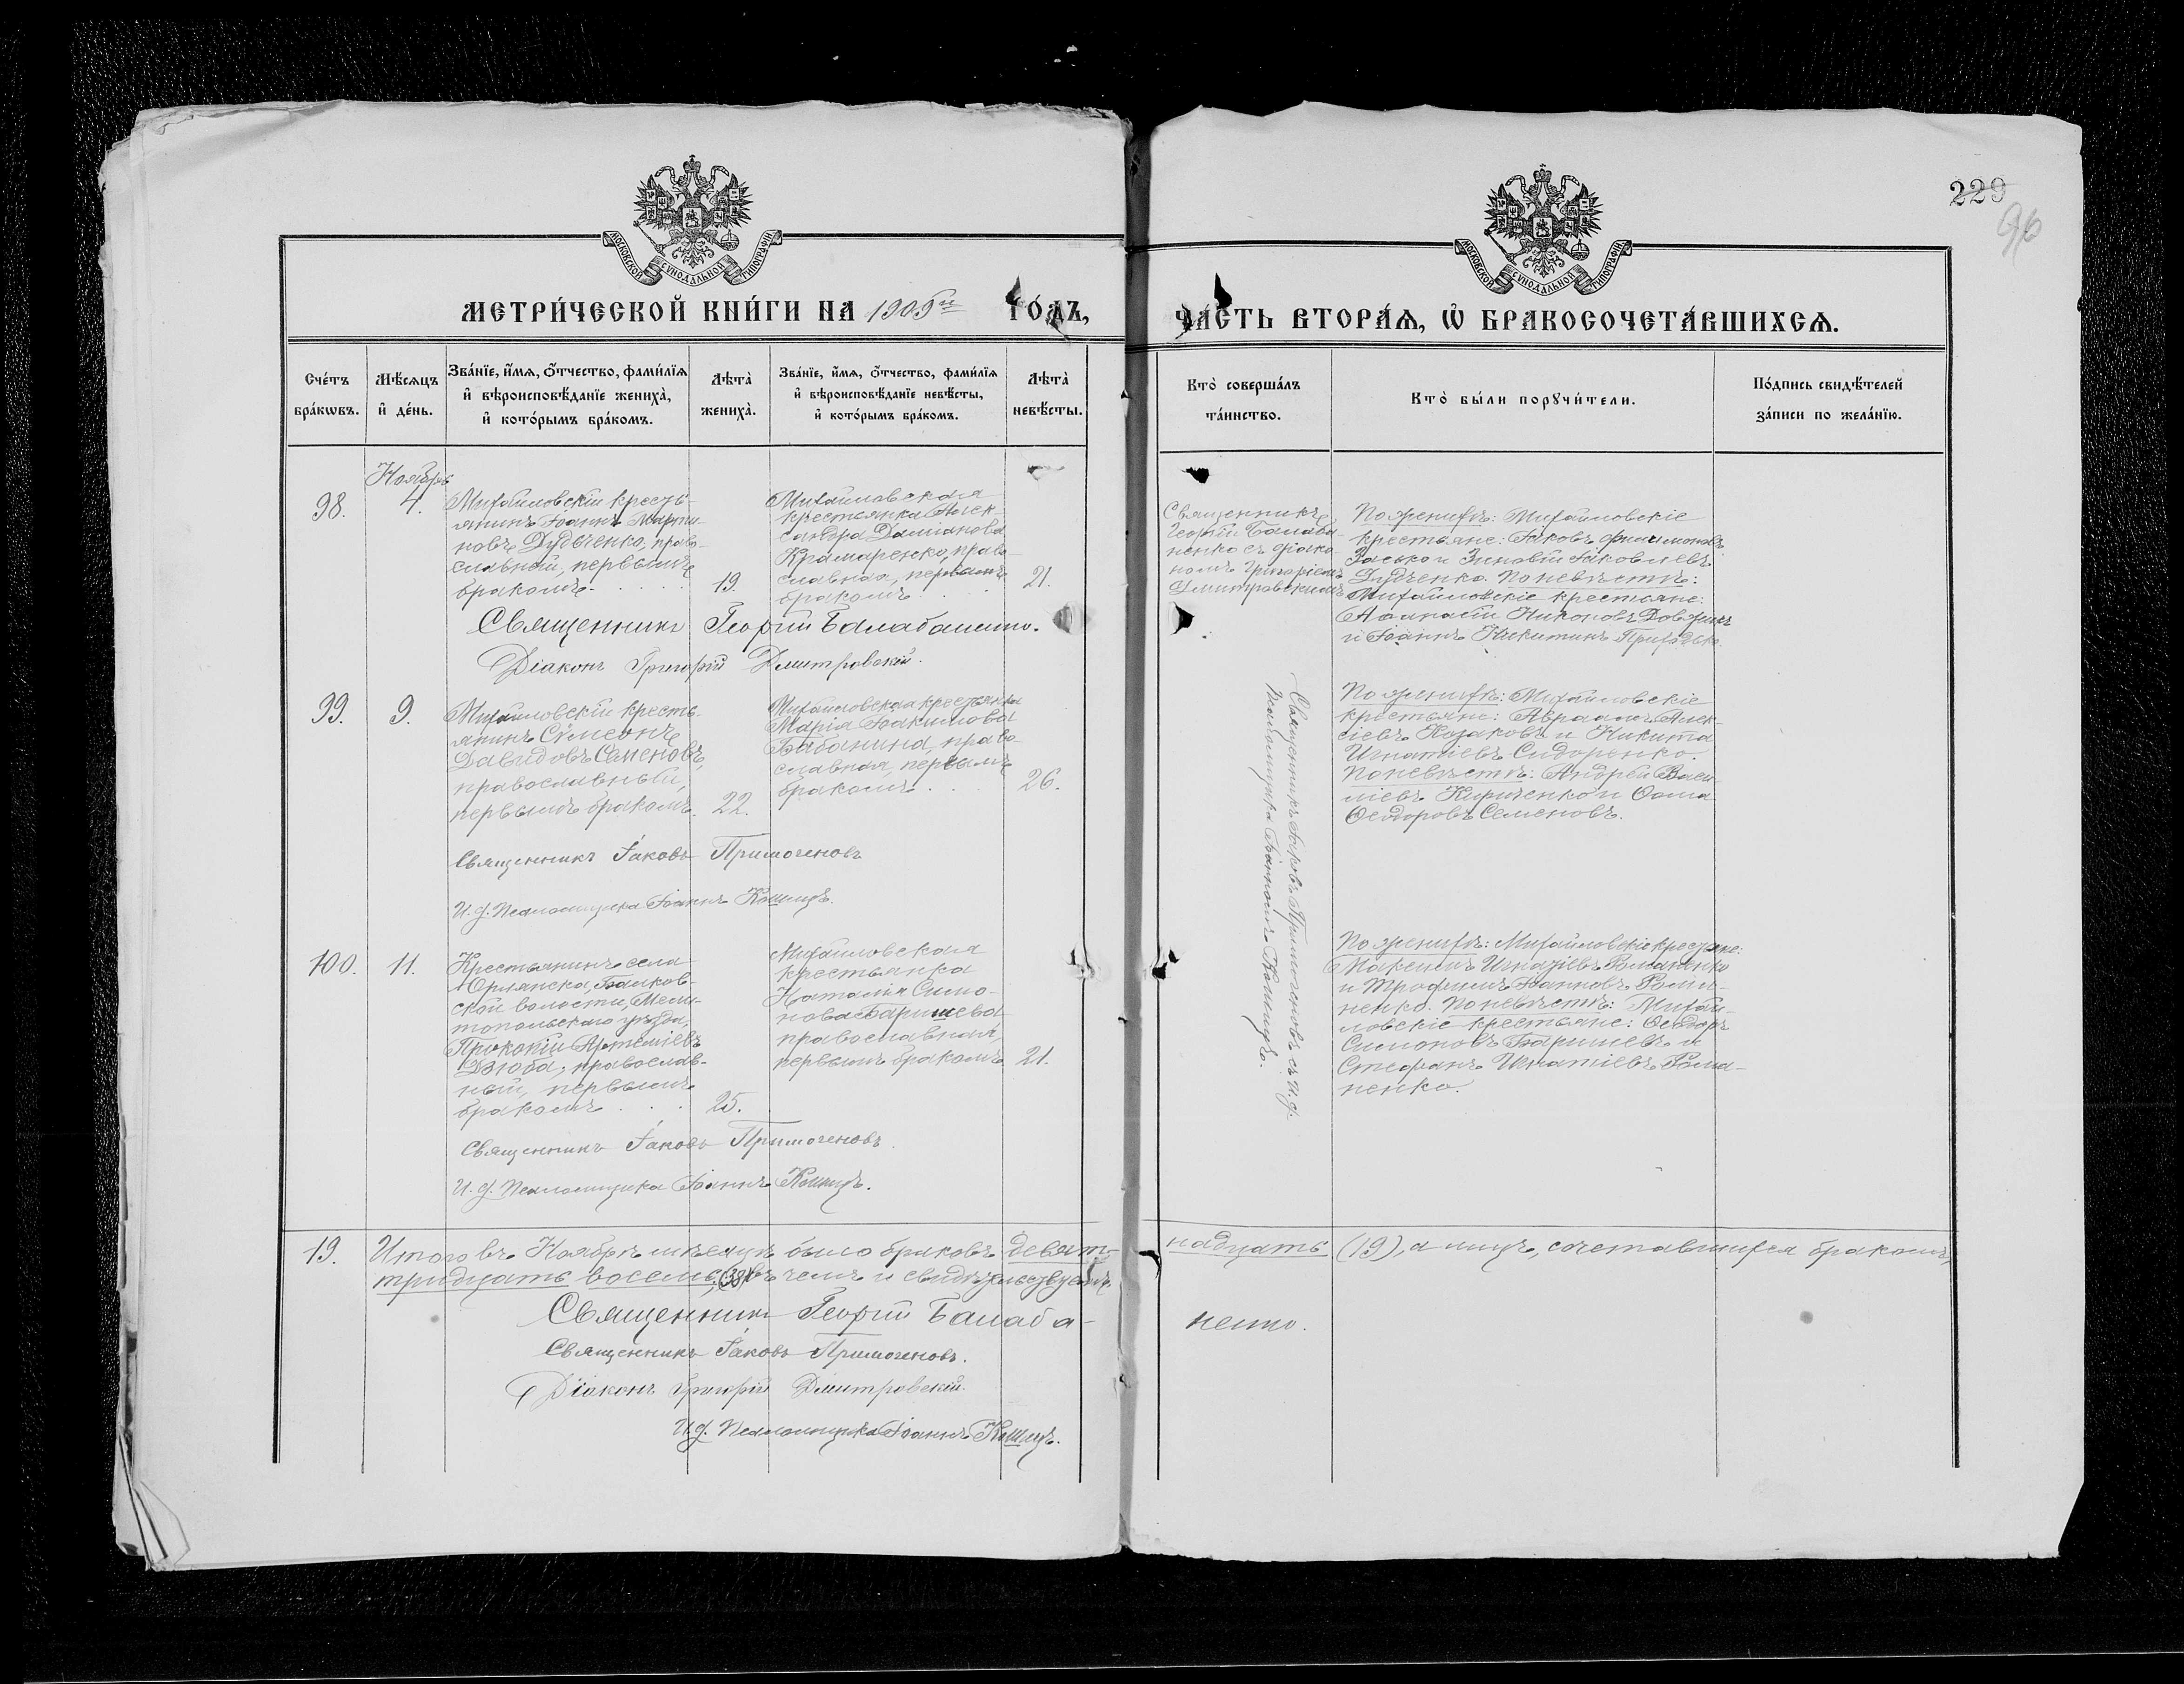 229
96
МОСКОВСКОЙ СУНОДАЛЬНОЙ ТИПОГРАФІИ
МОСКОВСКОЙ СУНОДАЛЬНОЙ ТИПОГРАФІИ
МЕТРИ́ЧЕСКОЙ КНИ́ГИ НА 1905й ГО́ДЪ,
ЧА́СТЬ ВТОРА́Ѧ, Ѡ҆ БРАКОСОЧЕТА́ВШИХСѦ.
Сче́тъ бра́кѡвъ.
Мѣ́сѧцъ и҆ де́нь.
Зва́нїе, и҆́мѧ, ѻ҆́тчество, фами́лїѧ и҆ вѣроисповѣ́данїе жениха̀, и҆ кото́рымъ бра́комъ.
Лѣта̀ жениха̀.
Зва́нїе, и҆́мѧ, ѻ҆́тчество, фами́лїѧ и҆ вѣроисповѣ́данїе невѣ́сты, и҆ кото́рымъ бра́комъ.
Лѣта̀ невѣ́сты.
Кто̀ соверша́лъ та́инство.
Кто̀ бы́ли порꙋчи́тели.
По́дпись свидѣ́телей за́писи по жела́нїю.
Ноябрь
98.
4.
Михайловскій кресть-
янинъ Іоаннъ Марти-
новъ Дудченко, право-
славный, первымъ
бракомъ.
19.
Михайловская
крестьянка Алек-
сандра Даміанова
Крамаренко, право-
славная, первымъ
бракомъ
21.
Священникъ
Георгій Балаба-
ненко съ діако-
номъ Григоріемъ
Дмитровскимъ
По женихѣ: Михайловскіе
крестьяне: Іаковъ Филимоновъ
Заско и Зиновій Іаковлевъ
Дудченко. По невѣстѣ:
Михайловскіе крестьяне:
Никоновъ
и Іоаннъ Никитинъ Приходько.
Священникъ Георгій Балабаненко.
Діаконъ Григорій Дмитровскій.
99.
9.
Михайловскій кресть-
янинъ Сѵмеонъ
Давидовъ Семеновъ,
православный,
первымъ бракомъ.
22.
Михайловская крестьянка
Марія Іоакимова
Бабанина, право-
славная, первымъ
бракомъ
26.
Священникъ Іаковъ Примоченовъ съ и. д.
Псаломщика Іоанномъ Кошицъ.
По женихѣ: Михайловскіе
крестьяне: Авраамъ Алек-
сіевъ Козаковъ и Никита
Игнатіевъ Сидоренко.
По невѣстѣ: Андрей Васи-
ліевъ Кириченко и Ѳома
Ѳеодоровъ Семеновъ.
Священникъ Іаковъ Примоченовъ
И. д. Псаломщика Іоаннъ Кошицъ.
100.
11.
Крестьянинъ села
Юрлянска, Балков-
ской волости, Мели-
топольскаго уѣзда,
Прокопій Артеміевъ
Дзюба, православ-
ный, первымъ
бракомъ
25.
Михайловская
крестьянка
Наталія Симо-
нова Баришева
православная,
первымъ бракомъ
21.
По женихѣ: Михайловскіе крестьяне:
Максимъ Игнатіевъ Романенко
и Трофимъ Іоанновъ Рома-
ненко. По невѣстѣ: Михай-
ловскіе крестьяне: Ѳеодоръ
Симоновъ Баришевъ и
Стефанъ Игнатіевъ Рома-
ненко.
Священникъ Іаковъ Примоченовъ.
И. д. Псаломщика Іоаннъ Кошицъ.
19.
Итого въ Ноябрѣ мѣсяцѣ было браковъ девят-
надцать (19), а лицъ, сочетавшихся бракомъ,
тридцать восемь (38), въ чемъ и свидѣтельствуемъ.
Священникъ Георгій Балаба-
ненко.
Священникъ Іаковъ Примоченовъ.
Діаконъ Григорій Дмитровскій.
И. д. Псаломщика Іоаннъ Кошицъ.